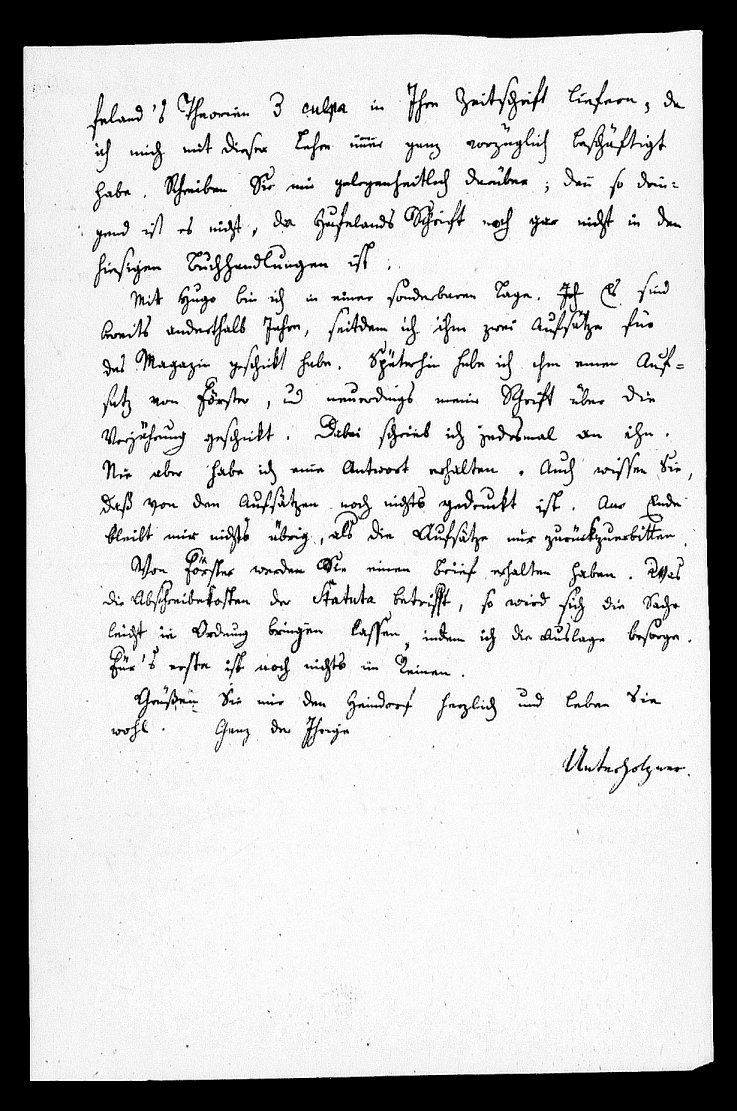 feland's Theorien 3 culpa in Ihre Zeitschrift liefern, da
ich mich mit dieser Lehre immer ganz vorzüglich beschäftigt
habe. Schreiben Sie mir gelegenheitlich darüber; denn so drin-
gend ist es nicht, da Hufelands Schrift noch gar nicht in den
hiesigen Buchhandlungen ist.
Mit Hugo bin ich in einer sonderbaren Lage. Es sind
bereits anderthalb Jahre, seitdem ich ihm zwei Aufsätze für
das Magazin geschickt habe. Späterhin habe ich ihm einen Auf-
satz von Förster, und neuerdings meine Schrift über die
Verjährung geschickt. Dabei schrieb ich jedesmal an ihn.
Nie aber habe ich eine Antwort erhalten. Auch wissen Sie,
daß von den Aufsätzen noch nichts gedruckt ist. Am Ende
bleibt mir nichts übrig, als die Aufsätze mir zurückzuerbitten.
Von Förster werden Sie einen Brief erhalten haben. Was
die Abschreibekosten der Statuta betrifft, so wird sich die Sache
leicht in Ordnung bringen lassen, indem ich die Auslage besorge.
Für's erste ist noch nichts im Reinen.
Grüßen Sie mir den Heindorf herzlich und leben Sie
wohl. Ganz der Ihrige
Unterholzner.